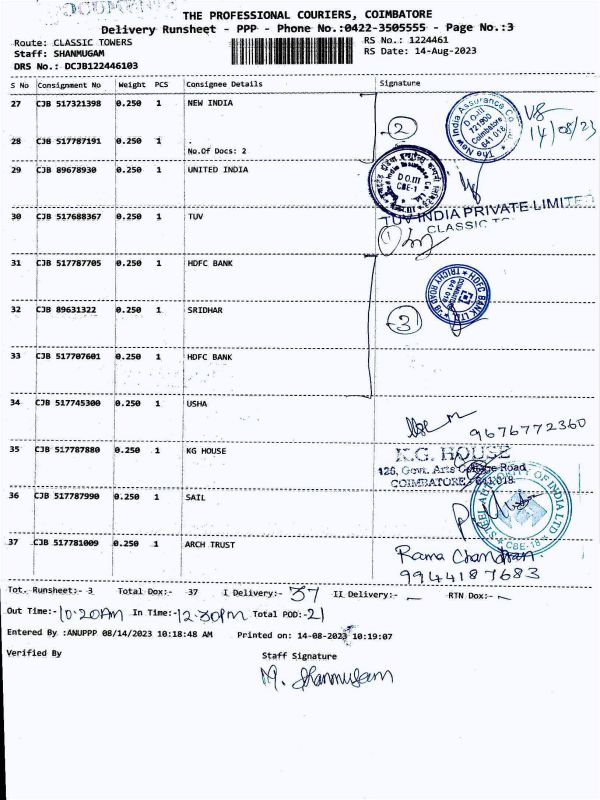 DOCUMENTS
THE PROFESSIONAL COURIERS, COIMBATORE
Delivery Runsheet - PPP - Phone No.:0422-3505555 - Page No.:3
Route: CLASSIC TOWERS
RS No.: 1224461
Staff: SHANMUGAM
RS Date: 14-Aug-2023
DRS No.: DCJB122446103
S No Consignment No Weight PCS Consignee Details Signature
27 CJB 517321398 0.250 1 NEW INDIA
The New India Assurance Co
D O.III
721900
Coimbatore
641 018
14/08/23
2
28 CJB 517787191 0.250 1 .
No.Of Docs: 2
29 CJB 89678930 0.250 1 UNITED INDIA
D O.III
CBE-1
30 CJB 517688367 0.250 1 TUV
TUV INDIA PRIVATE LIMITED
CLASSIC TO
1
31 CJB 517787705 0.250 1 HDFC BANK
HDFC BANK LTD
TRICHY ROAD
COIMBATORE
641 018
32 CJB 89631322 0.250 1 SRIDHAR
3
33 CJB 517707601 0.250 1 HDFC BANK
34 CJB 517745300 0.250 1 USHA
9676772360
35 CJB 517787880 0.250 1 KG HOUSE
K.G. HOUSE
126, Govt. Arts College Road
COIMBATORE - 641 018.
36 CJB 517787990 0.250 1 SAIL
STEEL AUTHORITY OF INDIA LTD
CBE-18
37 CJB 517781009 0.250 1 ARCH TRUST
Rama Chandran.
9944187683
Tot. Runsheet:- 3 Total Dox:- 37 I Delivery:- 37 II Delivery:- - RTN Dox:- -
Out Time:- 10.20Am In Time:- 12.30Pm Total POD:- 21
Entered By :ANUPPP 08/14/2023 10:18:48 AM Printed on: 14-08-2023 10:19:07
Verified By
Staff Signature
M. Shanmugam